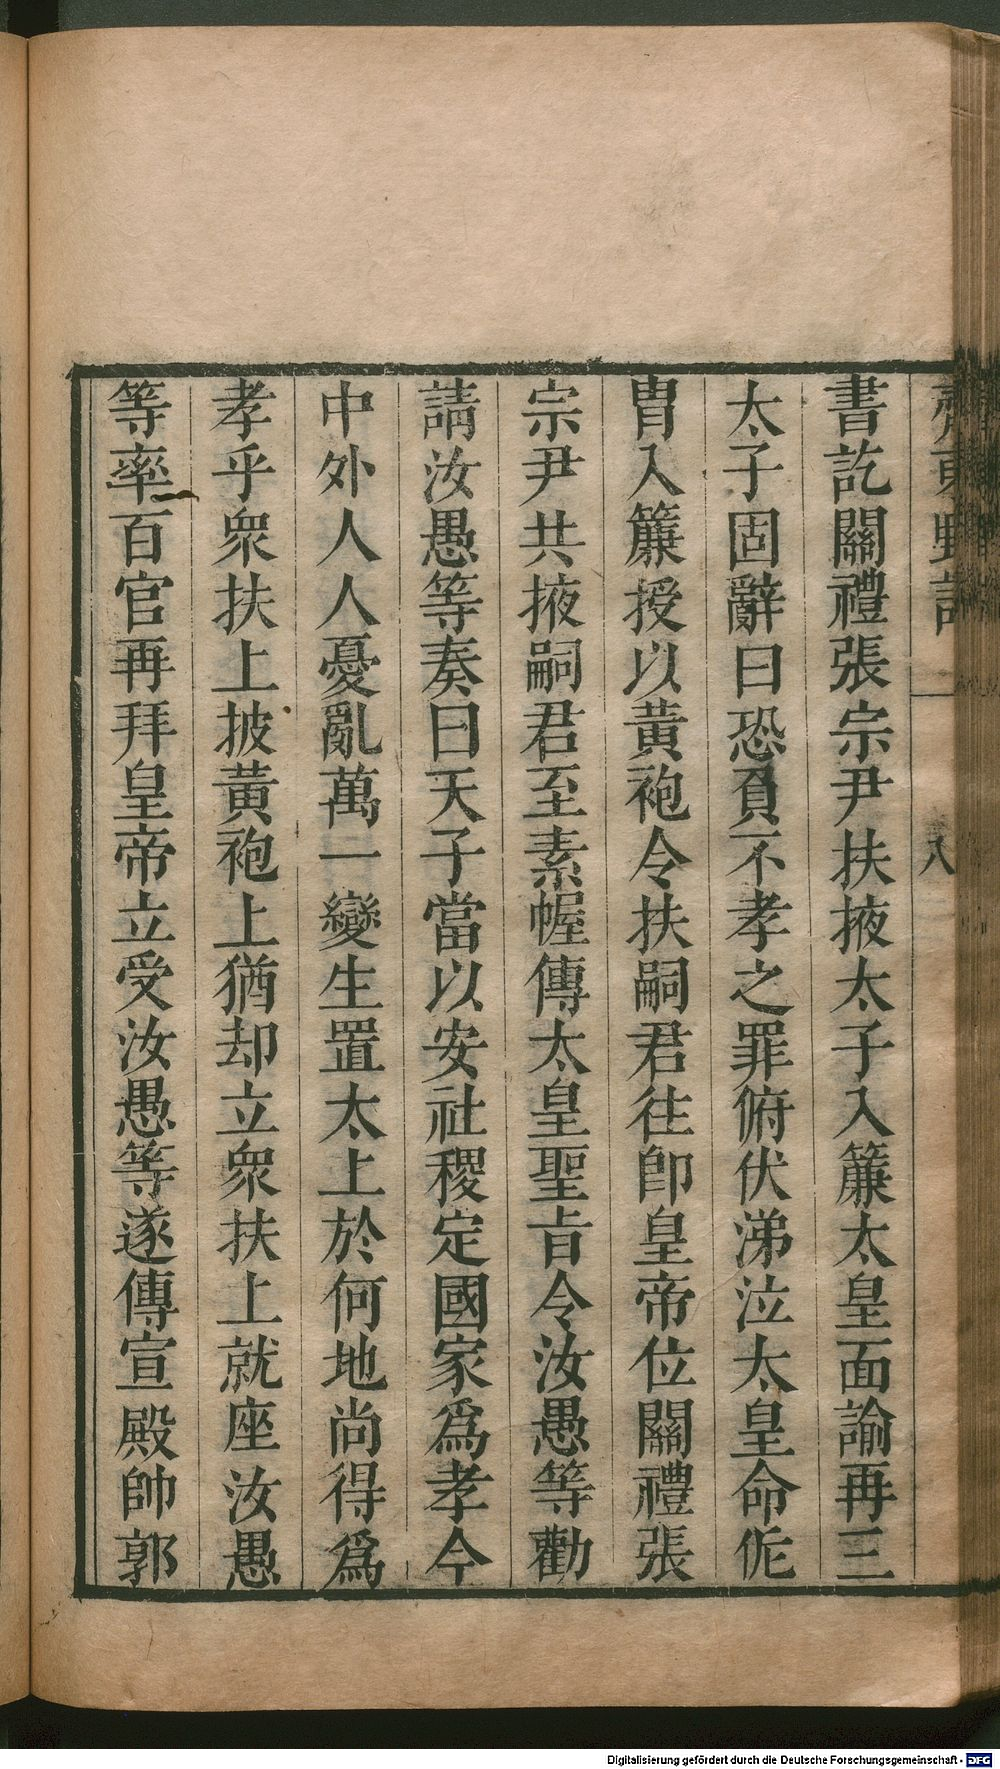 書訖關禮張宗尹扶掖太子入簾太皇面諭再三
太子固辭曰恐負不孝之罪俯伏涕泣太皇命侂
胄入簾授以黃袍令扶嗣君往卽皇帝位關禮張
宗尹共掖嗣君至素幄傳太皇聖旨令汝愚等勸
請汝愚等奏曰天子當以安社稷定國家爲孝今
中外人人憂亂萬一變生置太上於何地尚得爲
孝乎衆扶上披黃袍上猶却立衆扶上就座汝愚
等率百官再拜皇帝立受汝愚等遂傳宣殿帥郭
Digitalisierung gefördert durch die Deutsche Forschungsgemeinschaft - DFG